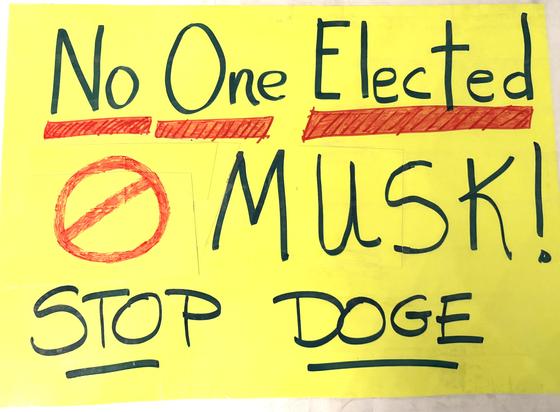 No One Elected
MUSK!
STOP DOGE